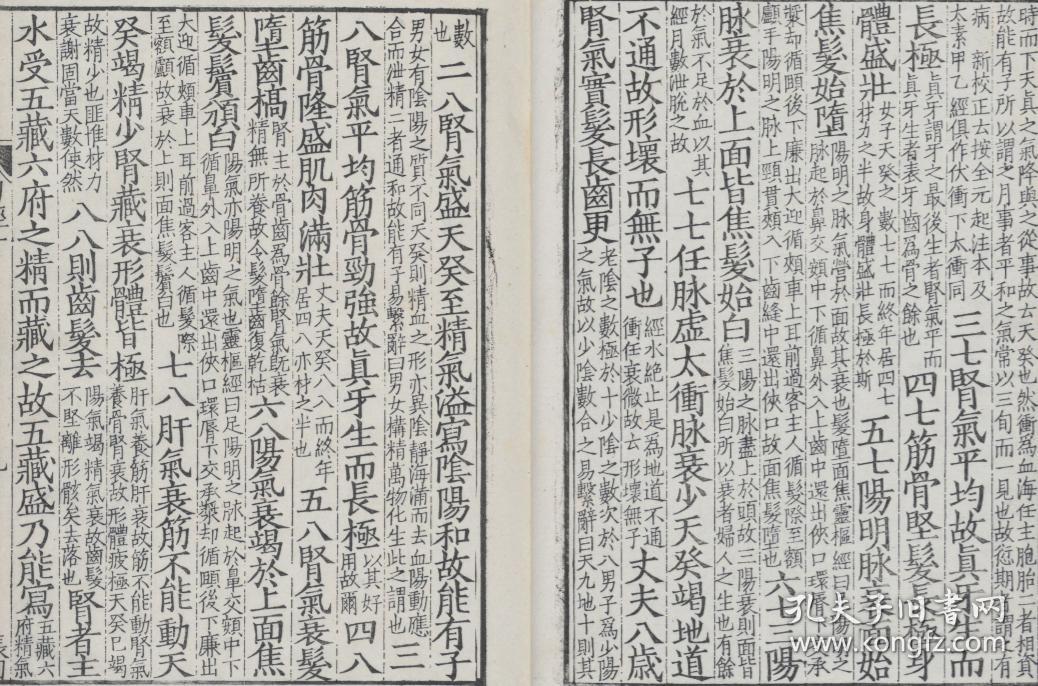 時而下天真之氣降與之從事故云天癸也然衝為血海任主胞胎二者相資
故能有子所以謂之月事者平和之氣常以三旬而一見也故愆期者謂之有
病　新校正云按全元起注本及太素甲乙經俱作伏衝下太衝同 三七腎氣平均故真牙生而
長極 真牙謂牙之最後生者腎氣平而真牙生者表牙齒為骨之餘也 四七筋骨堅髮長極身
體盛壯 女子天癸之數七七而終年居四七材力之半故身體盛壯長極於斯 五七陽明脉衰面始
焦髮始墮 陽明之脉氣營於面故其衰也髮墮面焦靈樞經曰陽明之脉起於鼻交頞中下循鼻外入上齒中還出俠口環脣下交承
漿却循頤後下廉出大迎循頰車上耳前過客主人循髮際至額顱手陽明之脉上頸貫頰入下齒縫中還出俠口故面焦髮墮也 六七三陽
脉衰於上面皆焦髮始白 三陽之脉盡上於頭故三陽衰則面皆焦髮始白所以衰者婦人之生也有餘
於氣不足於血以其經月數泄脫之故 七七任脉虛太衝脉衰少天癸竭地道
不通故形壞而無子也 經水絕止是為地道不通衝任衰微故云形壞無子 丈夫八歲
腎氣實髮長齒更 老陰之數極於十少陰之數次於八男子為少陽之氣故以少陰數合之易繫辭曰天九地十則其
數也 二八腎氣盛天癸至精氣溢寫陰陽和故能有子
男女有陰陽之質不同天癸則精血之形亦異陰靜海滿而去血陽動應合而泄精二者通和故能有子易繫辭曰男女構精萬物化生此之謂也 三
八腎氣平均筋骨勁強故真牙生而長極 以其好用故爾 四八
筋骨隆盛肌肉滿壯 丈夫天癸八八而終年居四八亦材之半也 五八腎氣衰髮
墮齒槁 腎主於骨齒為骨餘腎氣既衰精無所養故令髮墮齒復乾枯 六八陽氣衰竭於上面焦
髮鬢頒白 陽氣亦陽明之氣也靈樞經曰足陽明之脉起於鼻交頞中下循鼻外入上齒中還出俠口環脣下交承漿却循頤後下廉出
大迎循頰車上耳前過客主人循髮際至額顱故衰於上則面焦髮鬢白也 七八肝氣衰筋不能動天
癸竭精少腎藏衰形體皆極 肝氣養筋肝衰故筋不能動腎氣養骨腎衰故形體疲極天癸已竭
故精少也匪惟材力衰謝固當天數使然 八八則齒髮去 陽氣竭精氣衰故齒髮不堅離形骸矣去落也 腎者主
水受五藏六府之精而藏之故五藏盛乃能寫 五藏六府精氣
孔夫子旧书网
www.kongfz.com